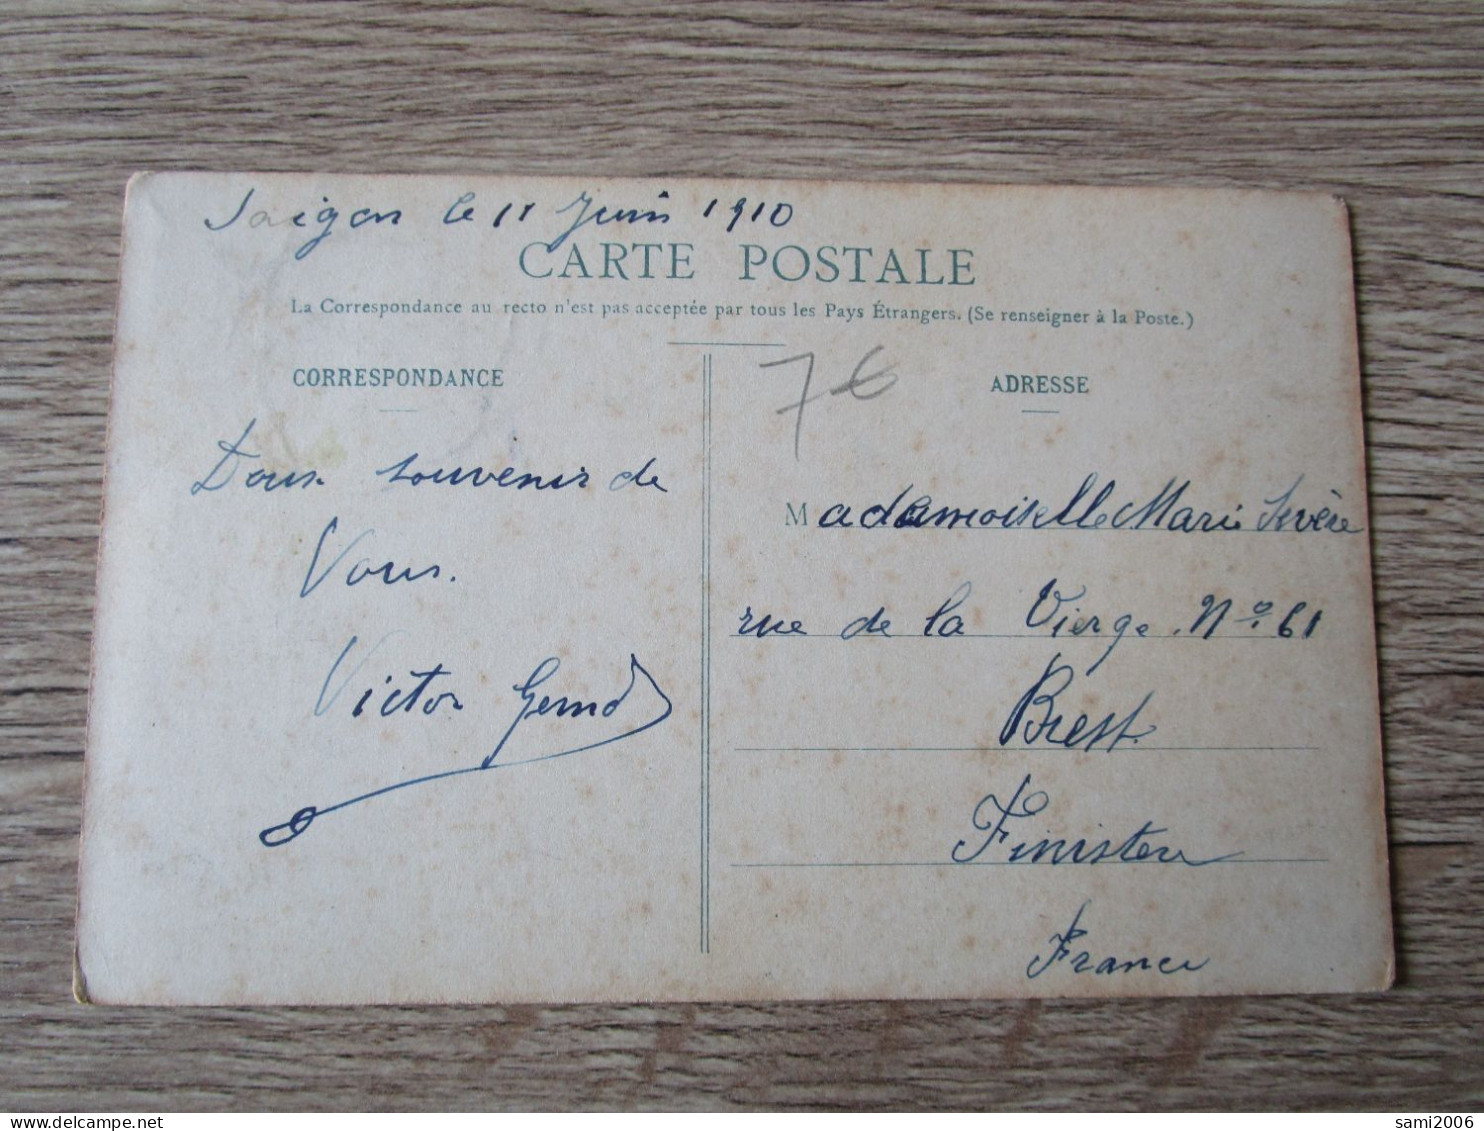 Saigon le 11 Juin 1910
CARTE POSTALE
La Correspondance au recto n'est pas acceptée par tous les Pays Étrangers. (Se renseigner à la Poste.)
CORRESPONDANCE
Doux souvenir de
Vous.
Victor
7€
ADRESSE
Mademoiselle Marie Sévère
rue de la Vierge. Nº. 61
Brest.
Finistère
France
sami2006